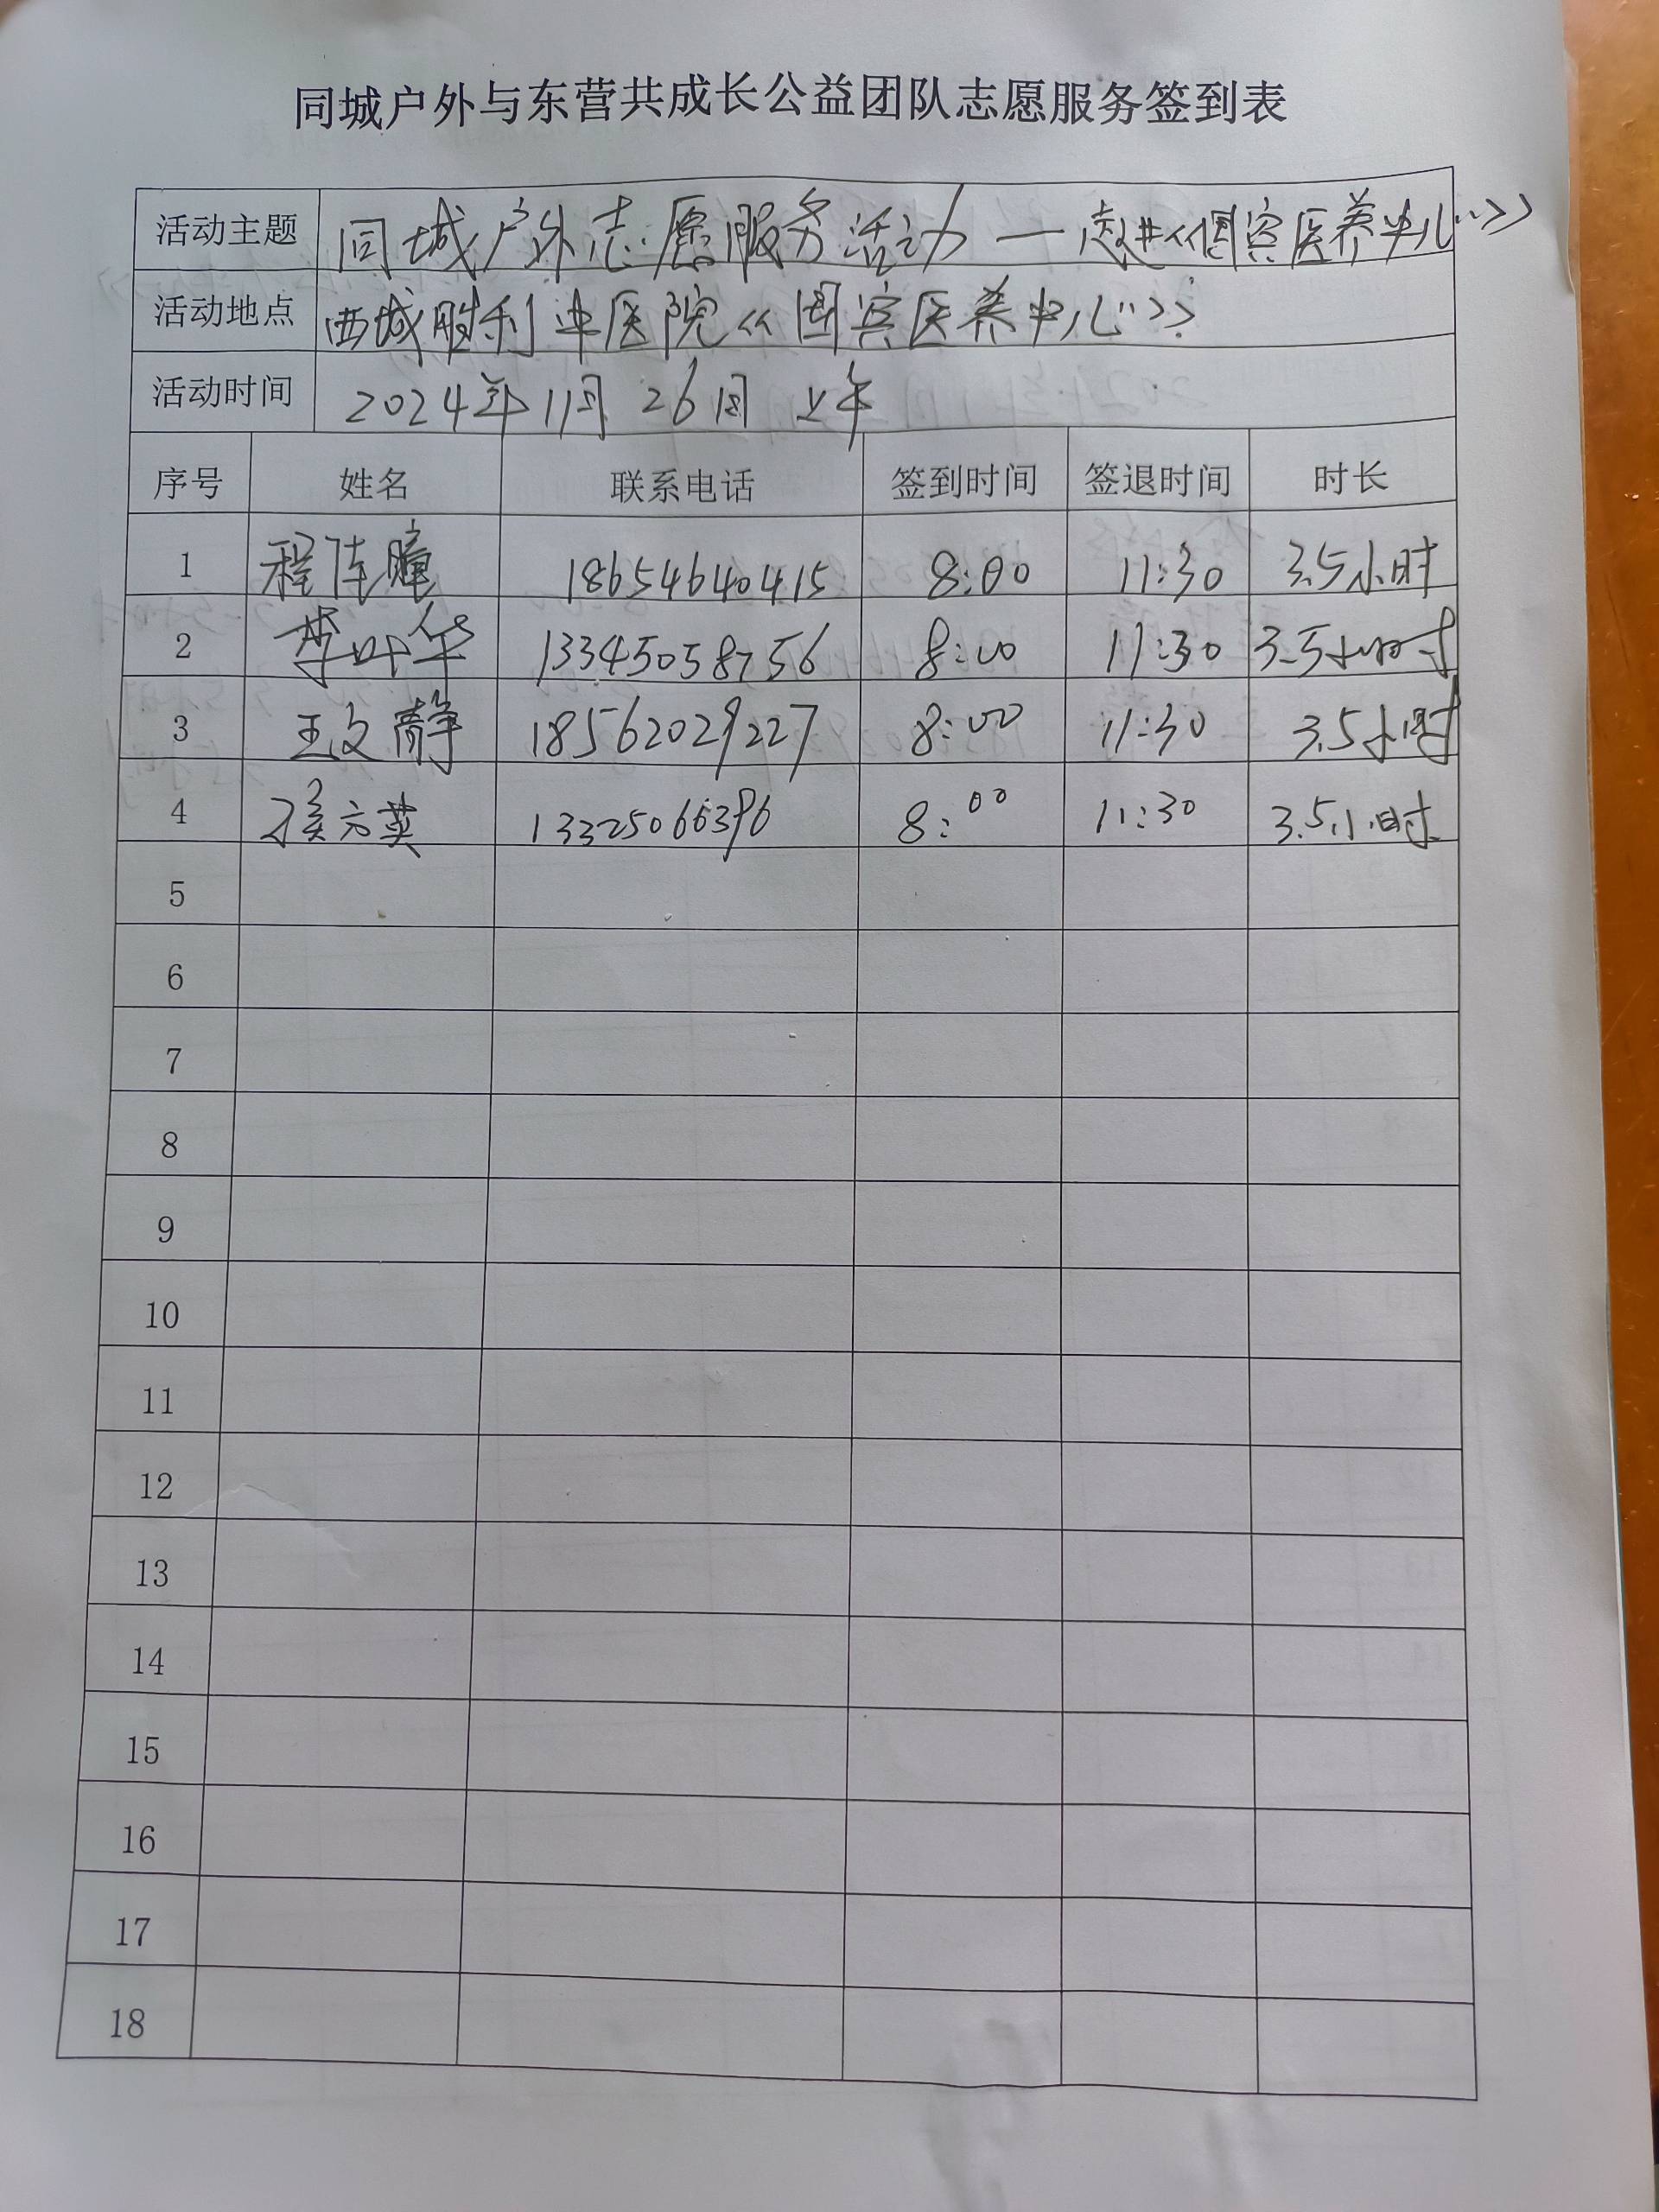 同城户外与东营共成长公益团队志愿服务签到表
活动主题 同城户外志愿服务活动—走进《国宾医养中心》
活动地点 西城胜利中医院《国宾医养中心》
活动时间 2024年11月26日 上午
序号 姓名 联系电话 签到时间 签退时间 时长
1 程连瞳 18654640415 8:00 11:30 3.5小时
2 李叶华 13345058756 8:00 11:30 3.5小时
3 王文静 18562029227 8:00 11:30 3.5小时
4 侯方英 8:00 11:30 3.5小时
5
6
7
8
9
10
11
12
13
14
15
16
17
18